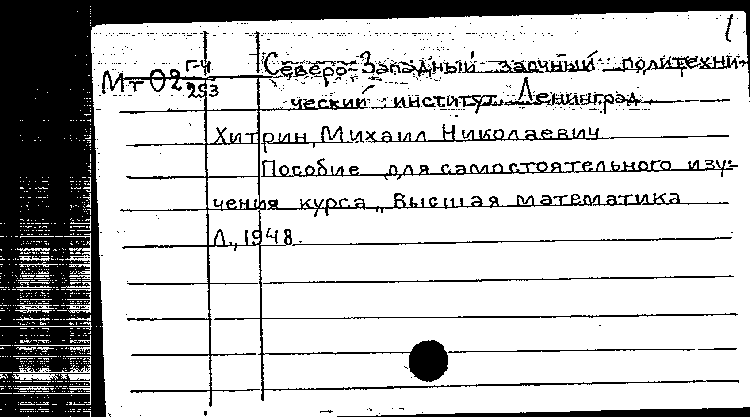 1
Северо-Западный заочный политехни-
Мт 02 Г-4/253
ческий институт. Ленинград.
Хитрин, Михаил Николаевич
Пособие для самостоятельного изу-
чения курса „Высшая математика
Л., 1948.